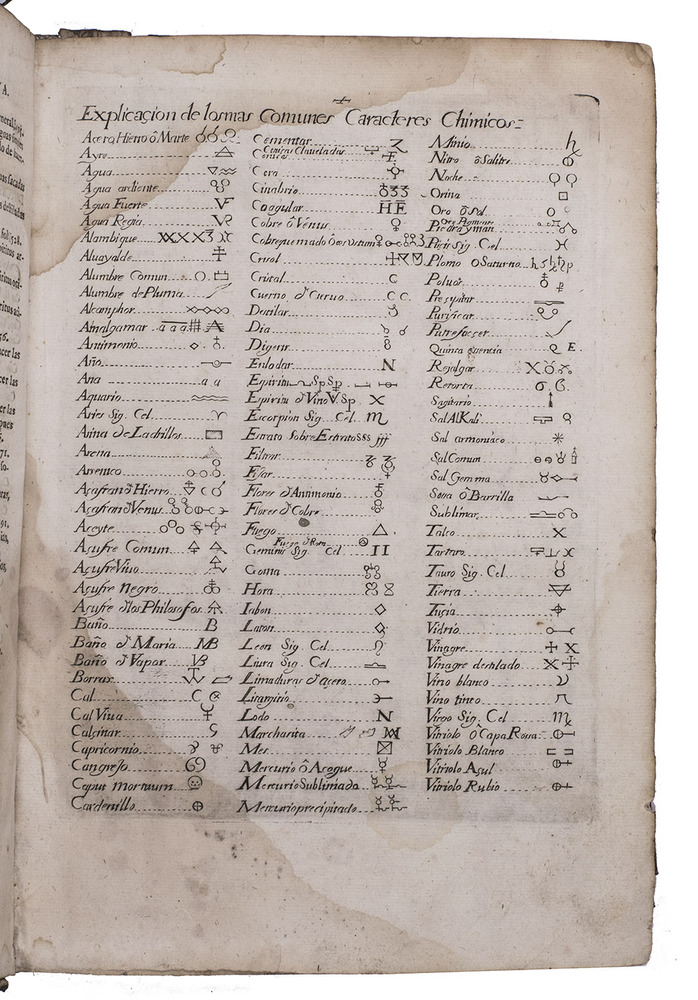 Explicaçion de los mas Comunes Caracteres Chimicos
Açero, Hierro ô Marte
Ayre
Agua
Agua ardiente
Agua Fuerte
Agua Regia
Alambique
Aluayalde
Alumbre Comun
Alumbre de Pluma
Alcamphor
Amalgamar a a a
Antimonio
Año
Ana a a
Aquario
Aries Sig. Cel.
Arina de Ladrillos
Arena
Arsenico
Açafran d Hierro
Açafran d Venus
Aceyte
Açufre Comun
Açufre Vivo
Açufre negro
Açufre d los Philosofos
Baño B
Baño d Maria MB
Baño d Vapor VB
Borrax
Cal C
Cal Viua
Calçinar
Capricornio
Cangrejo
Caput mortuum
Cardenillo
Cementar
Ceniças Clauelladas
Ceniça
Cera
Cinabrio
Coagular
Cobre ô Venus
Cobre quemado ô æs ustum
Crisol
Cristal
Cuerno d Cieruo C C
Destilar
Dia
Digerir
Enlodar
Espiritu Sp Sp
Espiritu d Vino V Sp
Escorpion Sig. Cel
Estrato Sobre Estrato SSS
Filtrar
Fijar
Flores d Antimonio
Flores d Cobre
Fuego
Fuego d Rota
Geminis Sig. Cel
Goma
Hora
Iabon
Laton
Leon Sig. Cel
Liura Sig. Cel
Limaduras d açero
Litargirio
Lodo
Marchasita
Mes
Mercurio ô Açogue
Mercurio Sublimado
Mercurio precipitado
Minio
Nitro ô Salitre
Noche
Orina
Oro ô Sol
Oro Pigmente
Piedra yman
Piscis Sig. Cel
Plomo ô Saturno
Poluos
Preçipitar
Purificar
Putrefacçer
Quinta esencia Q E.
Rejalgar
Retorta
Sagitario
Sal Al Kali
Sal armoniaco
Sal Comun
Sal Gemma
Sosa ô Barrilla
Sublimar
Talco
Tartaro
Tauro Sig. Cel
Tierra
Tuçia
Vidrio
Vinagre
Vinagre destilado
Vino blanco
Vino tinto
Virgo Sig. Cel
Vitriolo ô Capa Rosa
Vitriolo Blanco
Vitriolo Açul
Vitriolo Rubio